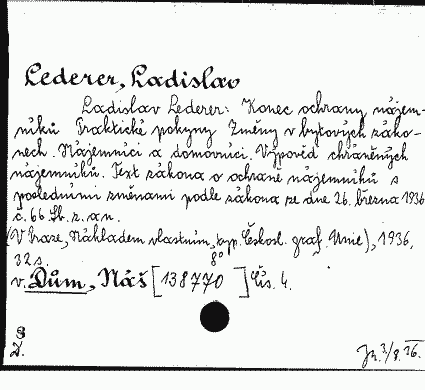 Lederer, Ladislav
Ladislav Lederer: Konec ochrany nájem-
níků Praktické pokyny Změny v bytových záko-
nech. Nájemníci a domovníci. Výpověď chráněných
nájemníků. Text zákona o ochraně nájemníků s
posledními změnami podle zákona ze dne 26. března 1936
č. 66 Sb. z. a n.
(V Praze, Nákladem vlastním, typ. Českosl. graf. Unie), 1936,
32 s. 8°
v. Dům, Náš [138770] Čís. 4.
S
D.
3/8. 36.